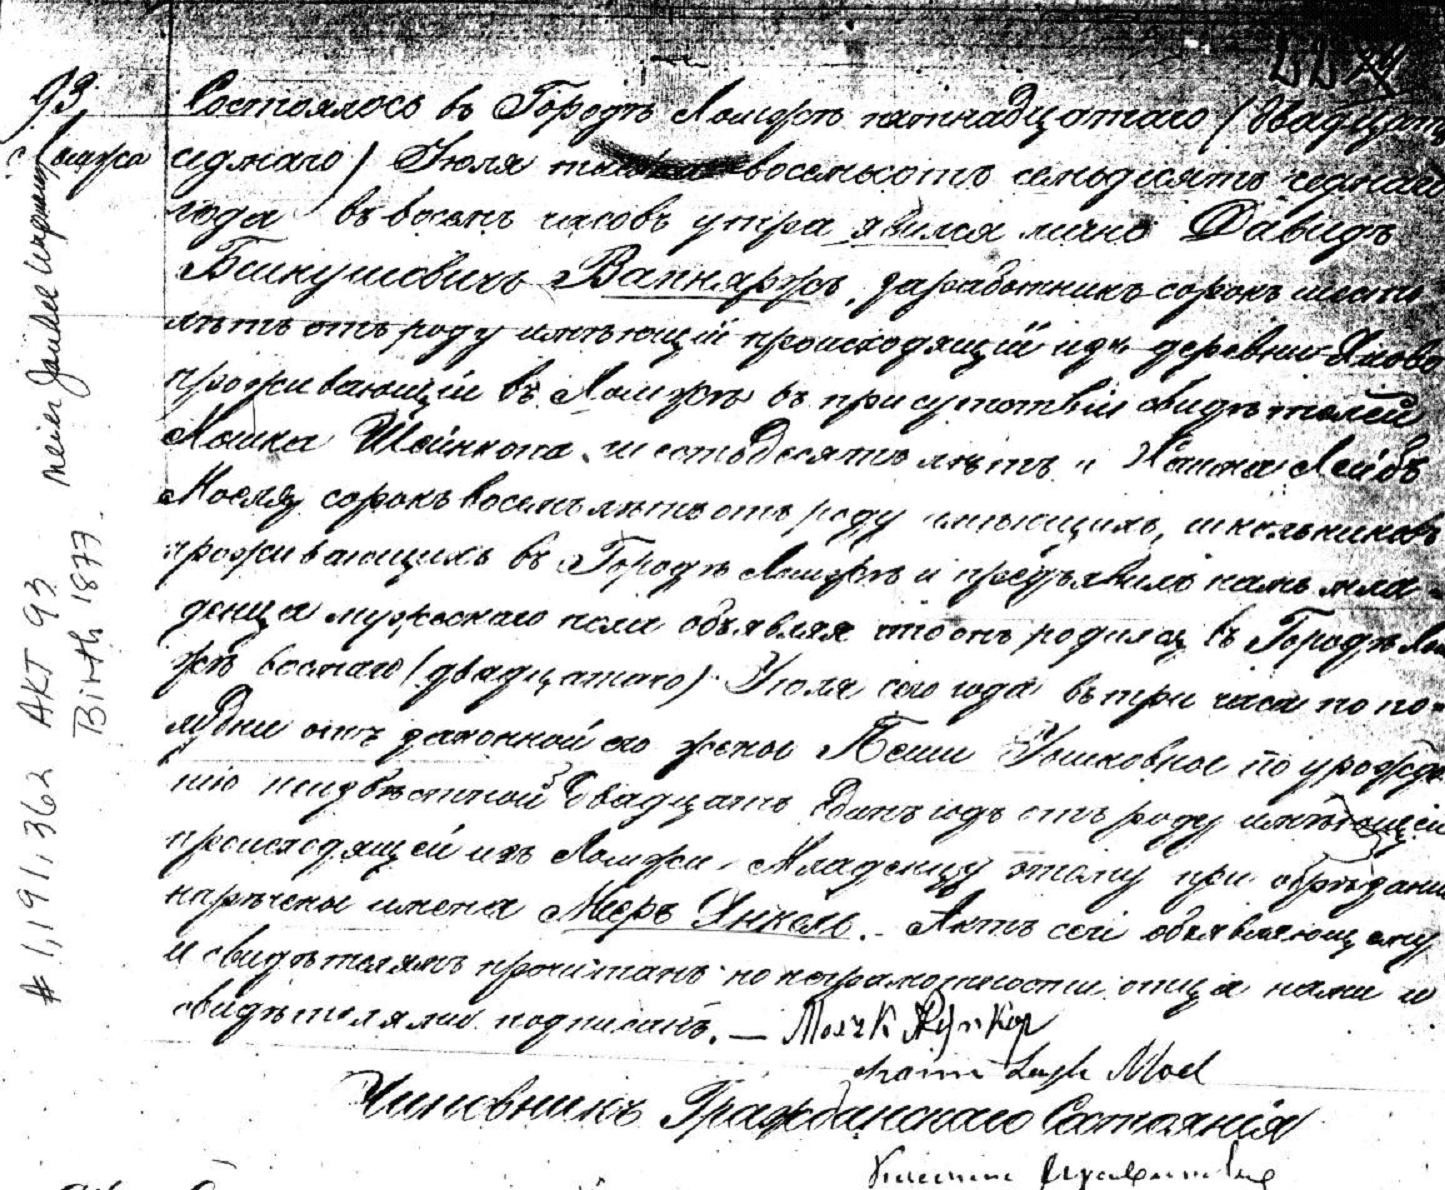 93
Ломжа
Состоялось въ Городѣ Ломжѣ пятнадцатаго (двадцать
седмаго) Июля тысяча восемьсотъ семьдесятъ седмаго
года въ восемь часовъ утра явился лично Давидъ
Бейнушовичъ Вапняржъ, заработникъ сорокъ шесть
лѣтъ отъ роду имѣющій происходящій изъ деревни
проживающій въ Ломжѣ въ присутствіи свидѣтелей
Мошка Шейнкопа, шестьдесятъ лѣтъ и Хаима Лейбъ
сорокъ восемь лѣтъ отъ роду имѣющихъ, школьниковъ
проживающихъ въ Городѣ Ломжѣ и предъявилъ намъ мла-
денца мужескаго пола объявляя что онъ родился въ Городѣ Лом
жѣ восмаго (двадцатаго) Июля сего года въ три часа по по-
лудни отъ законной его жены Пеши Ушковны по урожде
нію неизвѣстной двадцать одинъ годъ отъ роду имѣющей
происходящей изъ Ломжи. Младенцу этому при обрѣзаніи
наречены имена Мееръ Янкель. Актъ сей объявляющему
и свидѣтелямъ прочитанъ по неграмотности отца нами и
свидѣтелями подписанъ. —
Moel
Чиновникъ Гражданскаго Состоянія
# 1,191,362 AKT 93 Meier Jankel
Birth 1877